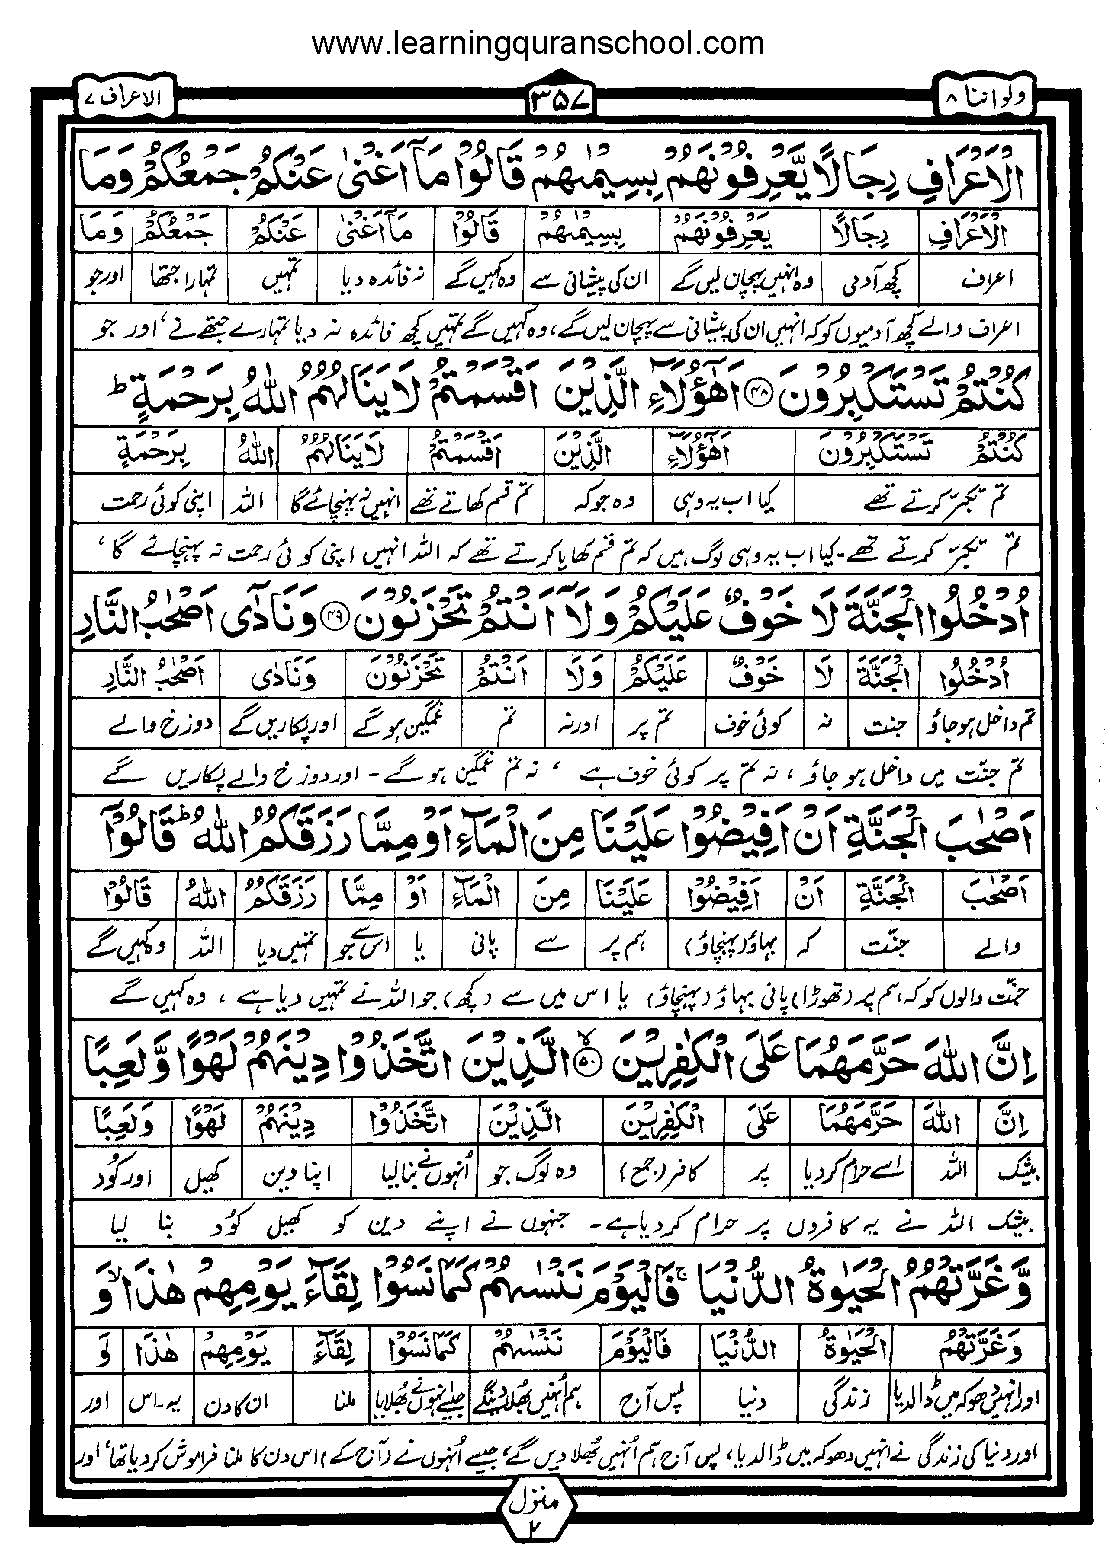 www.learningquranschool.com
ولو اننا ٨
٣٥٧
الاعراف ٧
الْاَعْرَافِ رِجَالًا يَّعْرِفُوْنَهُمْ بِسِيْمٰىهُمْ قَالُوْا مَآ اَغْنٰى عَنْكُمْ جَمْعُكُمْ وَمَا
الْاَعْرَافِ رِجَالًا يَعْرِفُوْنَهُمْ بِسِيْمٰىهُمْ قَالُوْا مَآ اَغْنٰى عَنْكُمْ جَمْعُكُمْ وَمَا
اعراف کچھ آدمی وہ انہیں پہچان لیں گے ان کی پیشانی سے وہ کہیں گے نہ فائدہ دیا تمہیں تمہارا جتھا اور جو
اعراف والے کچھ آدمیوں کو کہ انہیں ان کی پیشانی سے پہچان لیں گے، وہ کہیں گے تمہیں کچھ فائدہ نہ دیا تمہارے جتھے نے، اور جو
كُنْتُمْ تَسْتَكْبِرُوْنَ ﴿٤٨﴾ اَهٰٓؤُلَآءِ الَّذِيْنَ اَقْسَمْتُمْ لَا يَنَالُهُمُ اللّٰهُ بِرَحْمَةٍ ؕ
كُنْتُمْ تَسْتَكْبِرُوْنَ اَهٰٓؤُلَآءِ الَّذِيْنَ اَقْسَمْتُمْ لَا يَنَالُهُمُ اللّٰهُ بِرَحْمَةٍ
تم تکبر کرتے تھے کیا اب یہ وہی وہ جو کہ تم قسم کھاتے تھے انہیں نہ پہنچائے گا اللہ اپنی کوئی رحمت
تم تکبر کرتے تھے۔ کیا اب یہ وہی لوگ ہیں کہ تم قسم کھایا کرتے تھے کہ اللہ انہیں اپنی کوئی رحمت نہ پہنچائے گا،
اُدْخُلُوا الْجَنَّةَ لَا خَوْفٌ عَلَيْكُمْ وَلَآ اَنْتُمْ تَحْزَنُوْنَ ﴿٤٩﴾ وَنَادٰٓى اَصْحٰبُ النَّارِ
اُدْخُلُوا الْجَنَّةَ لَا خَوْفٌ عَلَيْكُمْ وَلَآ اَنْتُمْ تَحْزَنُوْنَ وَنَادٰى اَصْحٰبُ النَّارِ
تم داخل ہو جاؤ جنت نہ کوئی خوف تم پر اور نہ تم غمگین ہو گے اور پکاریں گے دوزخ والے
تم جنت میں داخل ہو جاؤ، نہ تم پر کوئی خوف ہے، نہ تم غمگین ہو گے۔ اور دوزخ والے پکاریں گے
اَصْحٰبَ الْجَنَّةِ اَنْ اَفِيْضُوْا عَلَيْنَا مِنَ الْمَآءِ اَوْ مِمَّا رَزَقَكُمُ اللّٰهُ ؕ قَالُوْٓا
اَصْحٰبَ الْجَنَّةِ اَنْ اَفِيْضُوْا عَلَيْنَا مِنَ الْمَآءِ اَوْ مِمَّا رَزَقَكُمُ اللّٰهُ قَالُوْٓا
والے جنت کہ بہاؤ (پہنچاؤ) ہم پر سے پانی یا اس سے جو تمہیں دیا اللہ وہ کہیں گے
جنت والوں کو کہ ہم پر (تھوڑا) پانی بہاؤ (پہنچاؤ) یا اس میں سے (کچھ) جو اللہ نے تمہیں دیا ہے، وہ کہیں گے
اِنَّ اللّٰهَ حَرَّمَهُمَا عَلَى الْكٰفِرِيْنَ ﴿٥٠﴾ الَّذِيْنَ اتَّخَذُوْا دِيْنَهُمْ لَهْوًا وَّلَعِبًا
اِنَّ اللّٰهَ حَرَّمَهُمَا عَلَى الْكٰفِرِيْنَ الَّذِيْنَ اتَّخَذُوْا دِيْنَهُمْ لَهْوًا وَلَعِبًا
بیشک اللہ اسے حرام کر دیا پر کافر (جمع) وہ لوگ جو انہوں نے بنا لیا اپنا دین کھیل اور کود
بیشک اللہ نے یہ کافروں پر حرام کر دیا ہے۔ جنہوں نے اپنے دین کو کھیل کود بنا لیا
وَّغَرَّتْهُمُ الْحَيٰوةُ الدُّنْيَا ۚ فَالْيَوْمَ نَنْسٰىهُمْ كَمَا نَسُوْا لِقَآءَ يَوْمِهِمْ هٰذَا ۙ وَ
وَغَرَّتْهُمُ الْحَيٰوةُ الدُّنْيَا فَالْيَوْمَ نَنْسٰىهُمْ كَمَا نَسُوْا لِقَآءَ يَوْمِهِمْ هٰذَا وَ
اور انہیں دھوکہ میں ڈال دیا زندگی دنیا پس آج ہم انہیں بھلا دینگے جیسے انہوں نے بھلایا ملنا ان کا دن یہ۔ اس اور
اور دنیا کی زندگی نے انہیں دھوکہ میں ڈال دیا، پس آج ہم انہیں بھلا دیں گے، جیسے انہوں نے (آج کے) اس دن کا ملنا فراموش کر دیا تھا، اور
منزل
٢